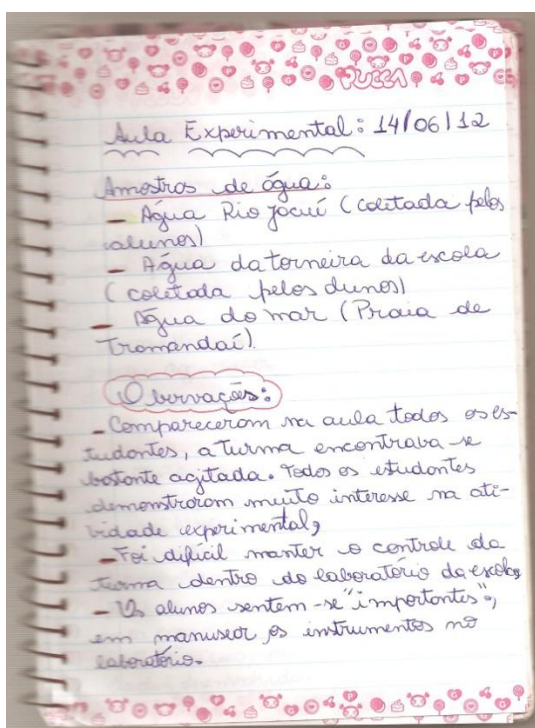 PUCCA
Aula Experimental: 14/06/12
Amostras de água:
- Água Rio Jacuí (coletada pelos
alunos)
- Água da torneira da escola
(coletada pelos alunos)
- Água do mar (Praia de
Tramandaí).
Observações:
- Compareceram na aula todos os es-
tudantes, a turma encontrava-se
bastante agitada. Todos os estudantes
demonstraram muito interesse na ati-
vidade experimental,
- Foi difícil manter o controle da
turma dentro do laboratório da escola,
- Os alunos sentem-se "importantes",
em manusear os instrumentos no
laboratório.